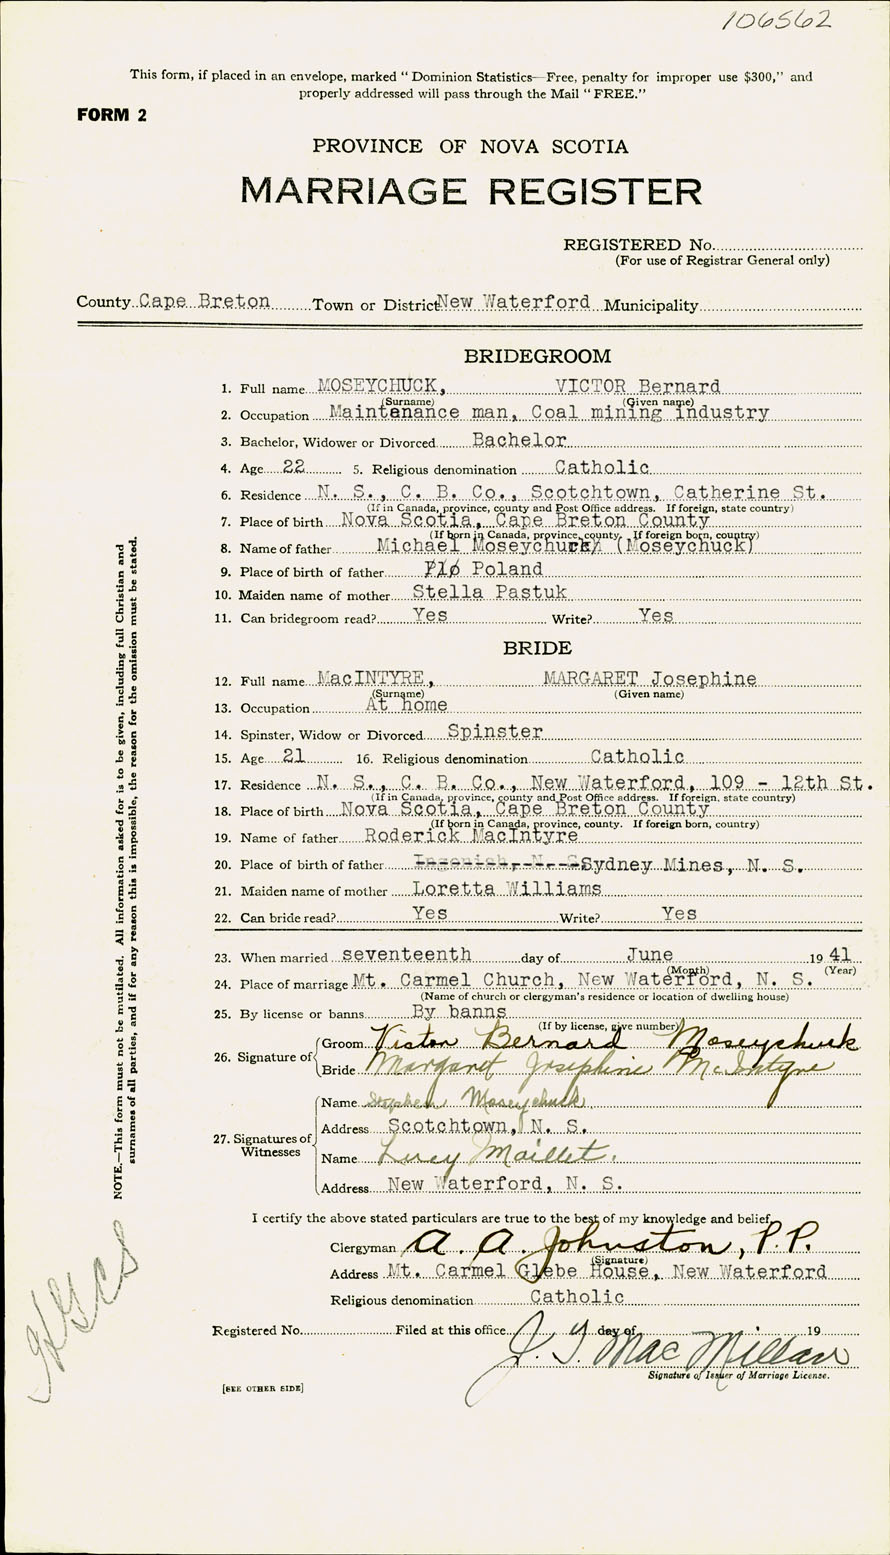 106562
This form, if placed in an envelope, marked “ Dominion Statistics—Free, penalty for improper use $300,” and
properly addressed will pass through the Mail “ FREE.”
FORM 2
PROVINCE OF NOVA SCOTIA
MARRIAGE REGISTER
REGISTERED No.
(For use of Registrar General only)
County Cape Breton Town or District New Waterford Municipality
BRIDEGROOM
1. Full name MOSEYCHUCK, VICTOR Bernard
(Surname) (Given name)
2. Occupation Maintenance man, Coal mining industry
3. Bachelor, Widower or Divorced Bachelor
4. Age 22 5. Religious denomination Catholic
6. Residence N. S., C. B. Co., Scotchtown, Catherine St.
(If in Canada, province, county and Post Office address. If foreign, state country)
7. Place of birth Nova Scotia, Cape Breton County
(If born in Canada, province, county. If foreign born, country)
8. Name of father Michael Moseychuck (Moseychuck)
9. Place of birth of father Poland
10. Maiden name of mother Stella Pastuk
11. Can bridegroom read? Yes Write? Yes
BRIDE
12. Full name MacINTYRE, MARGARET Josephine
(Surname) (Given name)
13. Occupation At home
14. Spinster, Widow or Divorced Spinster
15. Age 21 16. Religious denomination Catholic
17. Residence N. S., C. B. Co., New Waterford, 109 - 12th St.
(If in Canada, province, county and Post Office address. If foreign, state country)
18. Place of birth Nova Scotia, Cape Breton County
(If born in Canada, province, county. If foreign born, country)
19. Name of father Roderick MacIntyre
20. Place of birth of father Ingonish, N. S. Sydney Mines, N. S.
21. Maiden name of mother Loretta Williams
22. Can bride read? Yes Write? Yes
23. When married seventeenth day of June 19 41
(Month) (Year)
24. Place of marriage Mt. Carmel Church, New Waterford, N. S.
(Name of church or clergyman's residence or location of dwelling house)
25. By license or banns By banns
(If by license, give number)
26. Signature of
Groom Victor Bernard Moseychuck
Bride Margaret Josephine McIntyre
27. Signatures of Witnesses
Name Stephen Moseychuck
Address Scotchtown, N. S.
Name Lucy Maillet.
Address New Waterford, N. S.
I certify the above stated particulars are true to the best of my knowledge and belief.
Clergyman A. A. Johnston, P.P.
(Signature)
Address Mt. Carmel Glebe House, New Waterford
Religious denomination Catholic
Registered No. Filed at this office day of 19
MacMillan
Signature of Issuer of Marriage License.
[SEE OTHER SIDE]
NOTE.—This form must not be mutilated. All information asked for is to be given, including full Christian and
surnames of all parties, and if for any reason this is impossible, the reason for the omission must be stated.